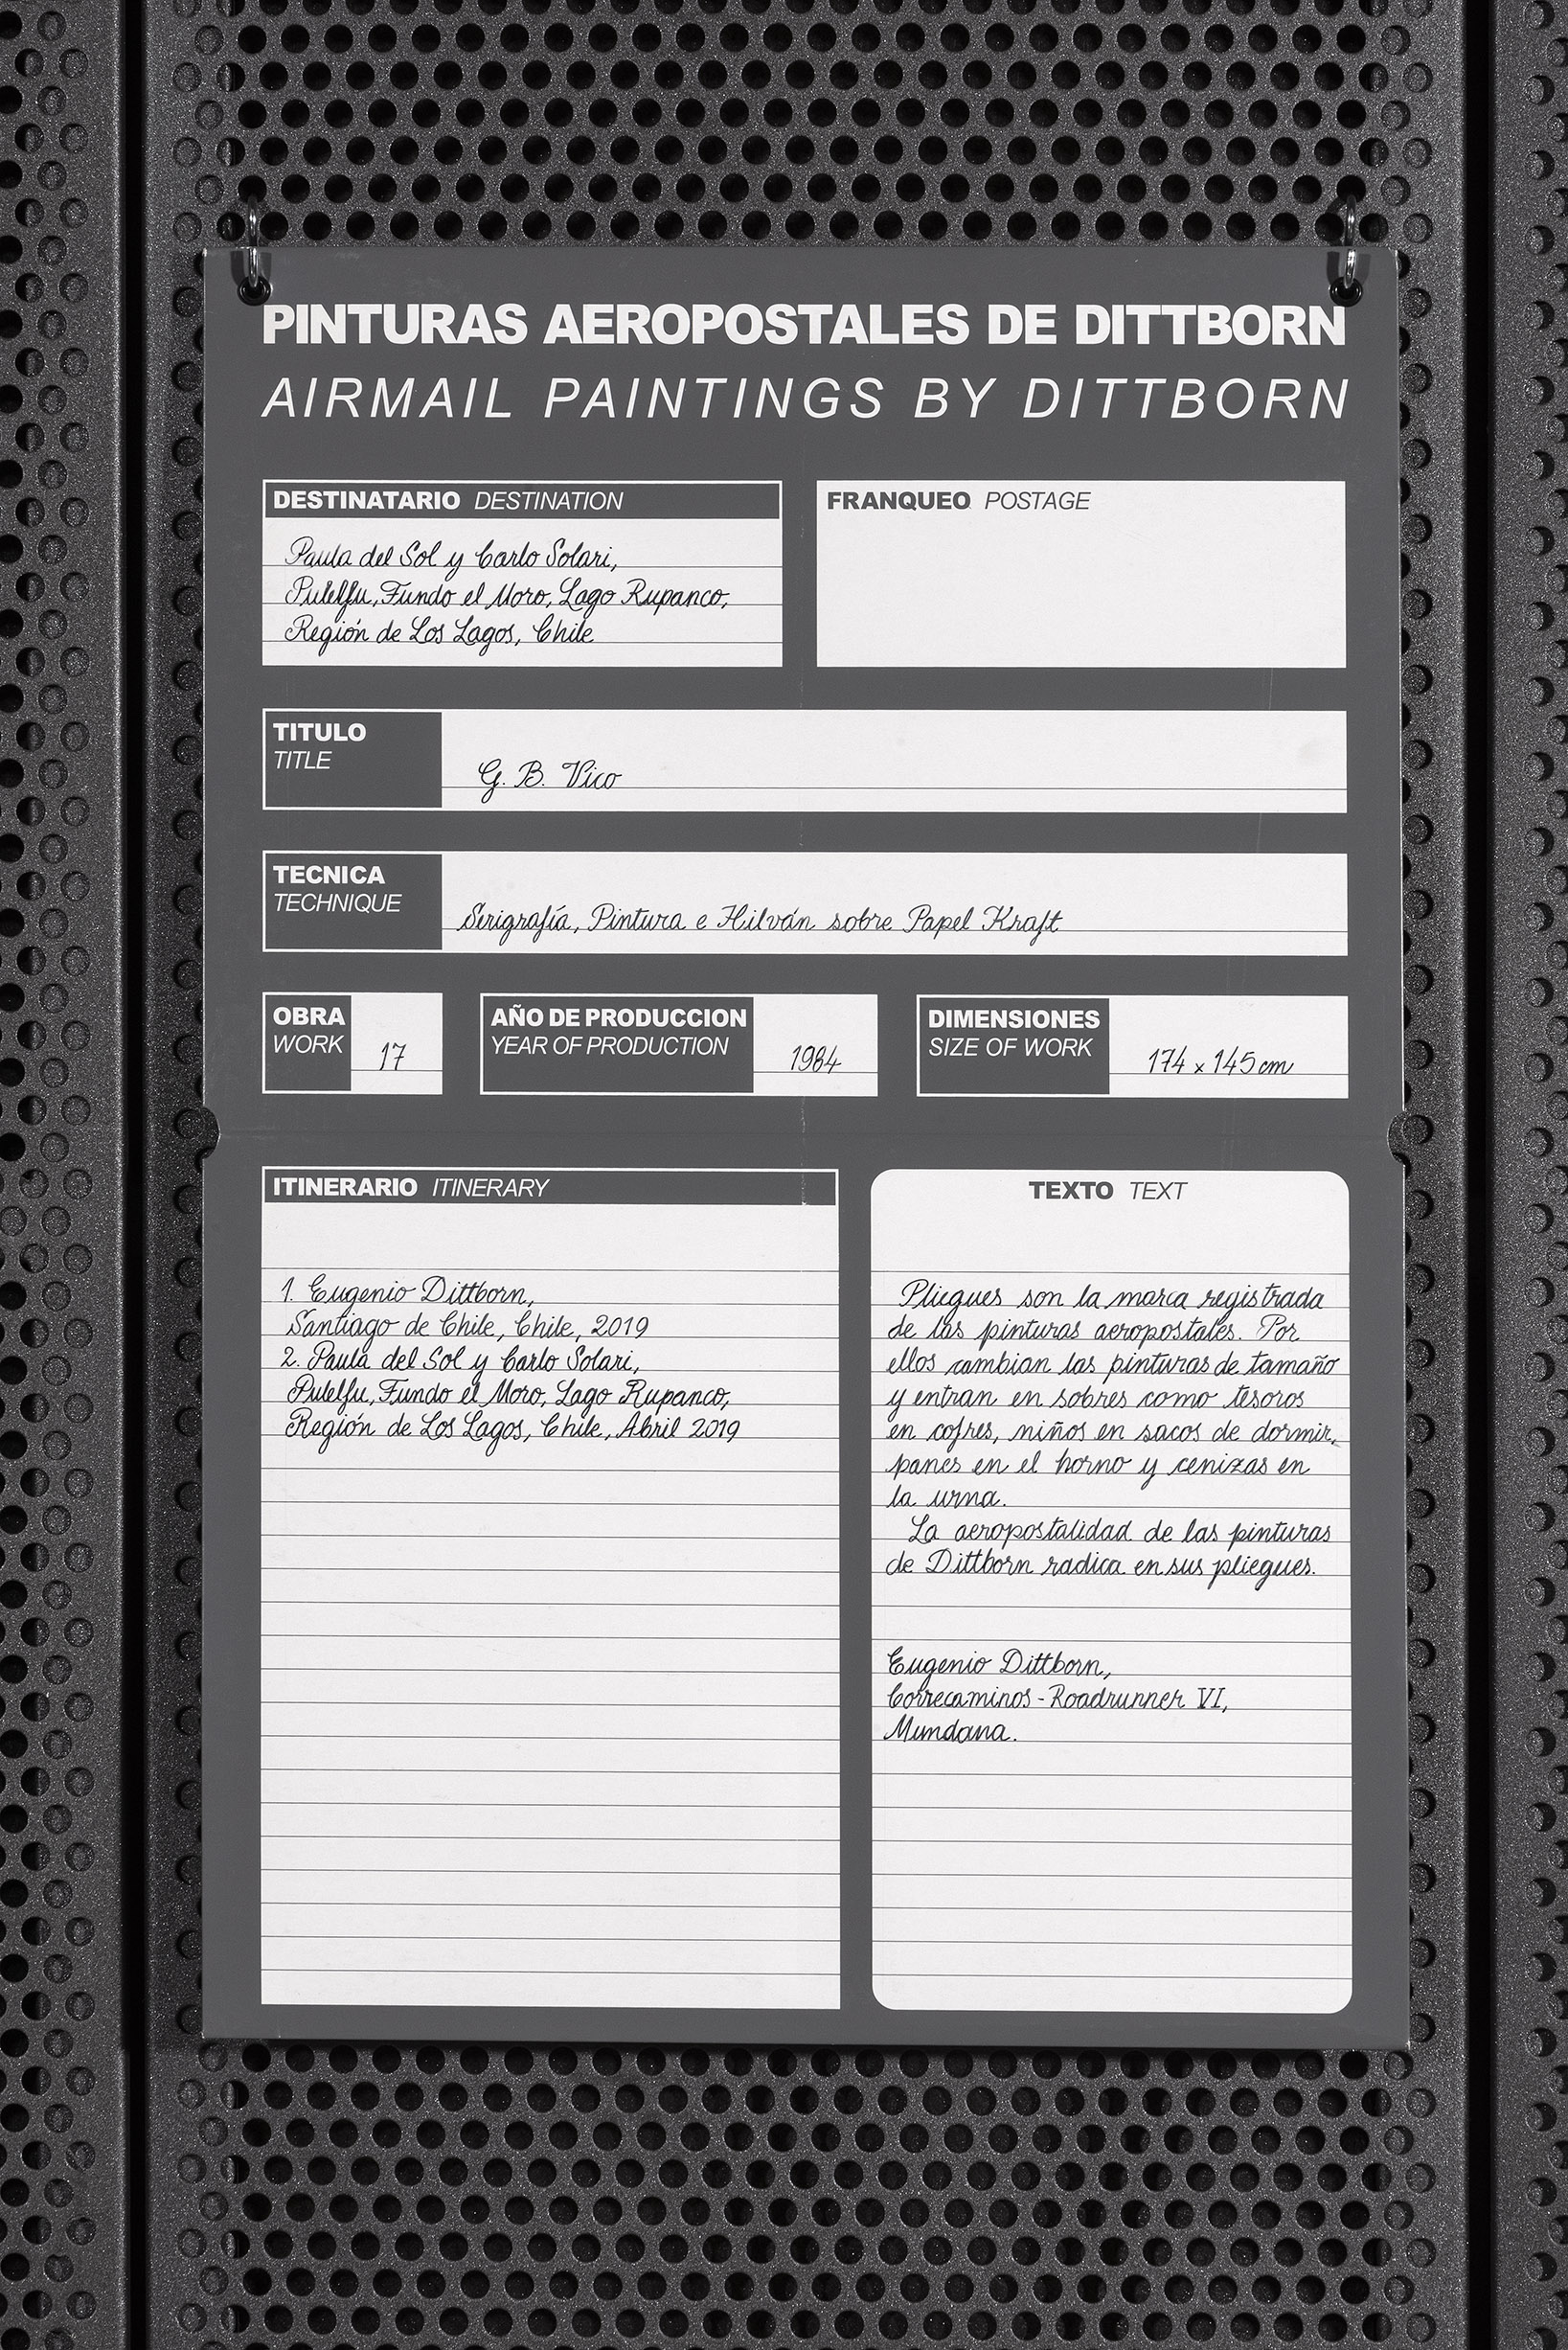 PINTURAS AEROPOSTALES DE DITTBORN
AIRMAIL PAINTINGS BY DITTBORN
DESTINATARIO DESTINATION
Paula del Sol y Carlo Solari,
Pulelfu, Fundo el Moro, Lago Rupanco,
Región de Los Lagos, Chile
FRANQUEO POSTAGE
TITULO
TITLE
G. B. Vico
TECNICA
TECHNIQUE
Serigrafía, Pintura e Hilván sobre Papel Kraft
OBRA
WORK
17
AÑO DE PRODUCCION
YEAR OF PRODUCTION
1984
DIMENSIONES
SIZE OF WORK
174 x 145 cm
ITINERARIO ITINERARY
1. Eugenio Dittborn,
Santiago de Chile, Chile, 2019
2. Paula del Sol y Carlo Solari,
Pulelfu, Fundo el Moro, Lago Rupanco,
Región de Los Lagos, Chile, Abril 2019
TEXTO TEXT
Pliegues son la marca registrada
de las pinturas aeropostales. Por
ellos cambian las pinturas de tamaño
y entran en sobres como tesoros
en cofres, niños en sacos de dormir,
panes en el horno y cenizas en
la urna.
La aeropostalidad de las pinturas
de Dittborn radica en sus pliegues.
Eugenio Dittborn,
Correcaminos - Roadrunner VI,
Mundana.